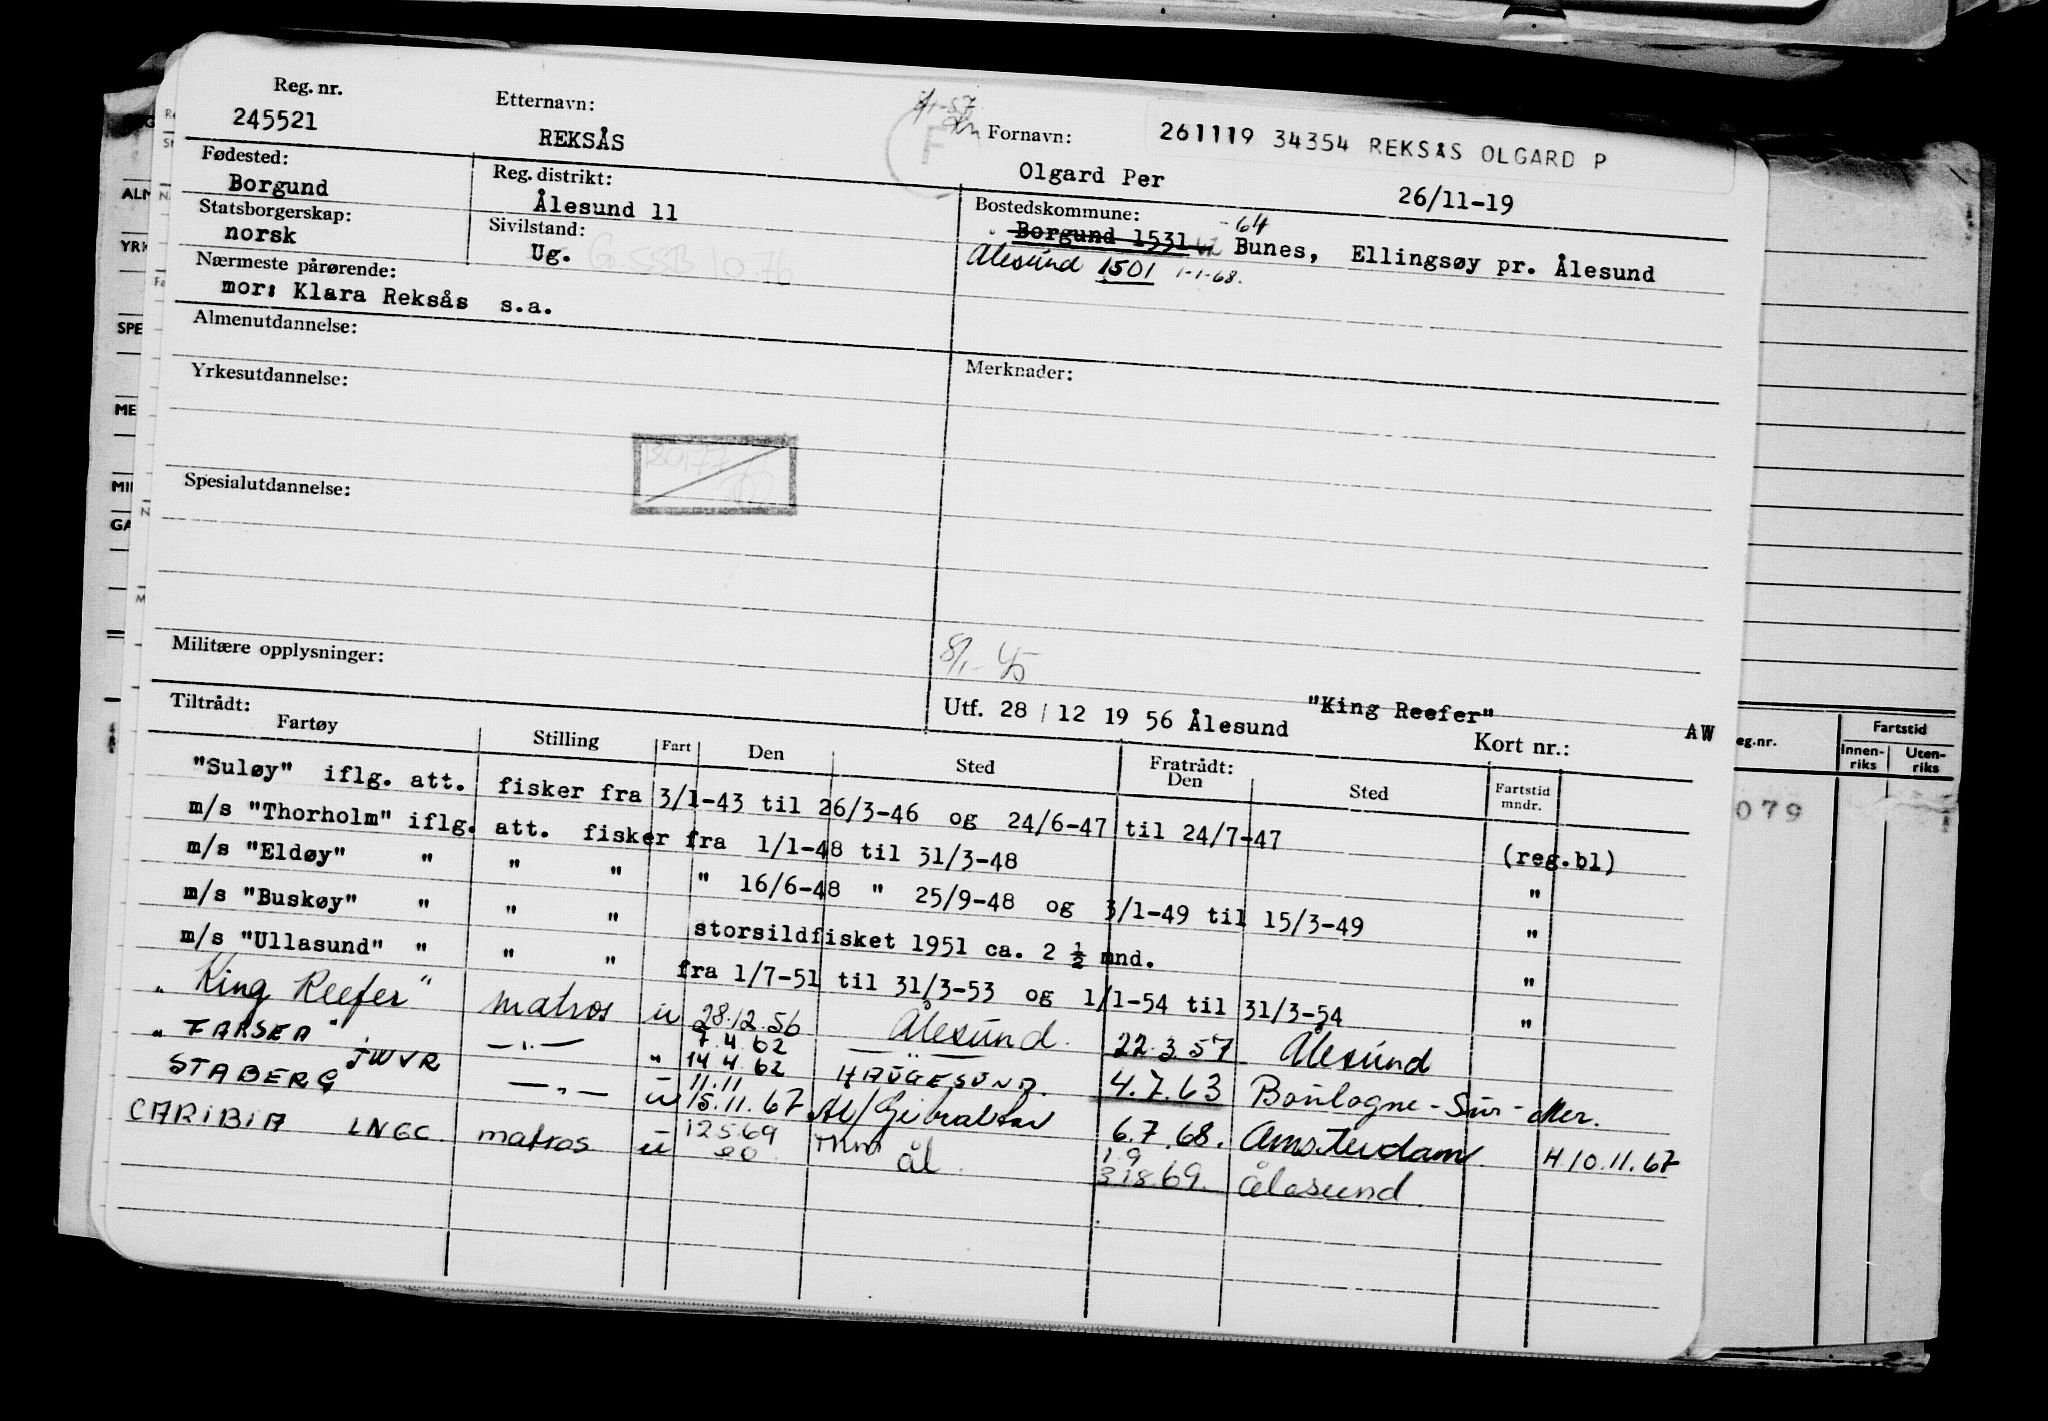 Reg. nr.
245521
Etternavn:
REKSÅS
Fornavn:
Olgard Per
261119 34354 REKSÅS OLGARD P
26/11-19
Fødested:
Borgund
Reg. distrikt:
Ålesund 11
Bostedskommune:
-64
Borgund 1531 Bunes, Ellingsøy pr. Ålesund
Ålesund 1501 1-1-68.
Statsborgerskap:
norsk
Sivilstand:
Ug.
Nærmeste pårørende:
mor: Klara Reksås s.a.
Almenutdannelse:
Yrkesutdannelse:
Merknader:
Spesialutdannelse:
Militære opplysninger:
8/1-45
Utf. 28 / 12 19 56 Ålesund "King Reefer" AW
Tiltrådt:
Fartøy Stilling Fart Den Sted Fratrådt: Den Sted Kort nr.: Fartstid mndr.
"Suløy" iflg. att. fisker fra 3/1-43 til 26/3-46 og 24/6-47 til 24/7-47 (reg.bl)
m/s "Thorholm" iflg. att. fisker fra 1/1-48 til 31/3-48 "
m/s "Eldøy" " " " " 16/6-48 " 25/9-48 og 3/1-49 til 15/3-49 "
m/s "Buskøy" " " " storsildfisket 1951 ca. 2 ½ mnd. "
m/s "Ullasund" " " " fra 1/7-51 til 31/3-53 og 1/1-54 til 31/3-54 "
" King Reefer" matros u 28.12.56 Ålesund. 22.3.57 Ålesund
" FARSEA" JWVR —"— " 7.4.62
14.4.62 HAUGESUND. 4.7.63 Boulogne-Sur-Mer.
STABERG —"— u 11.11
15.11.67 Ål/Gibraltar 6.7.68. Amsterdam. H 10.11.67
CARIBIA LNGC. matros u 12.5.69
20 ål. 1.9
31.8.69. ålesund.
eg.nr.
Fartstid
Innen-
riks
Uten-
riks
079
ALM
YRK
SPE
ME
MI
GA